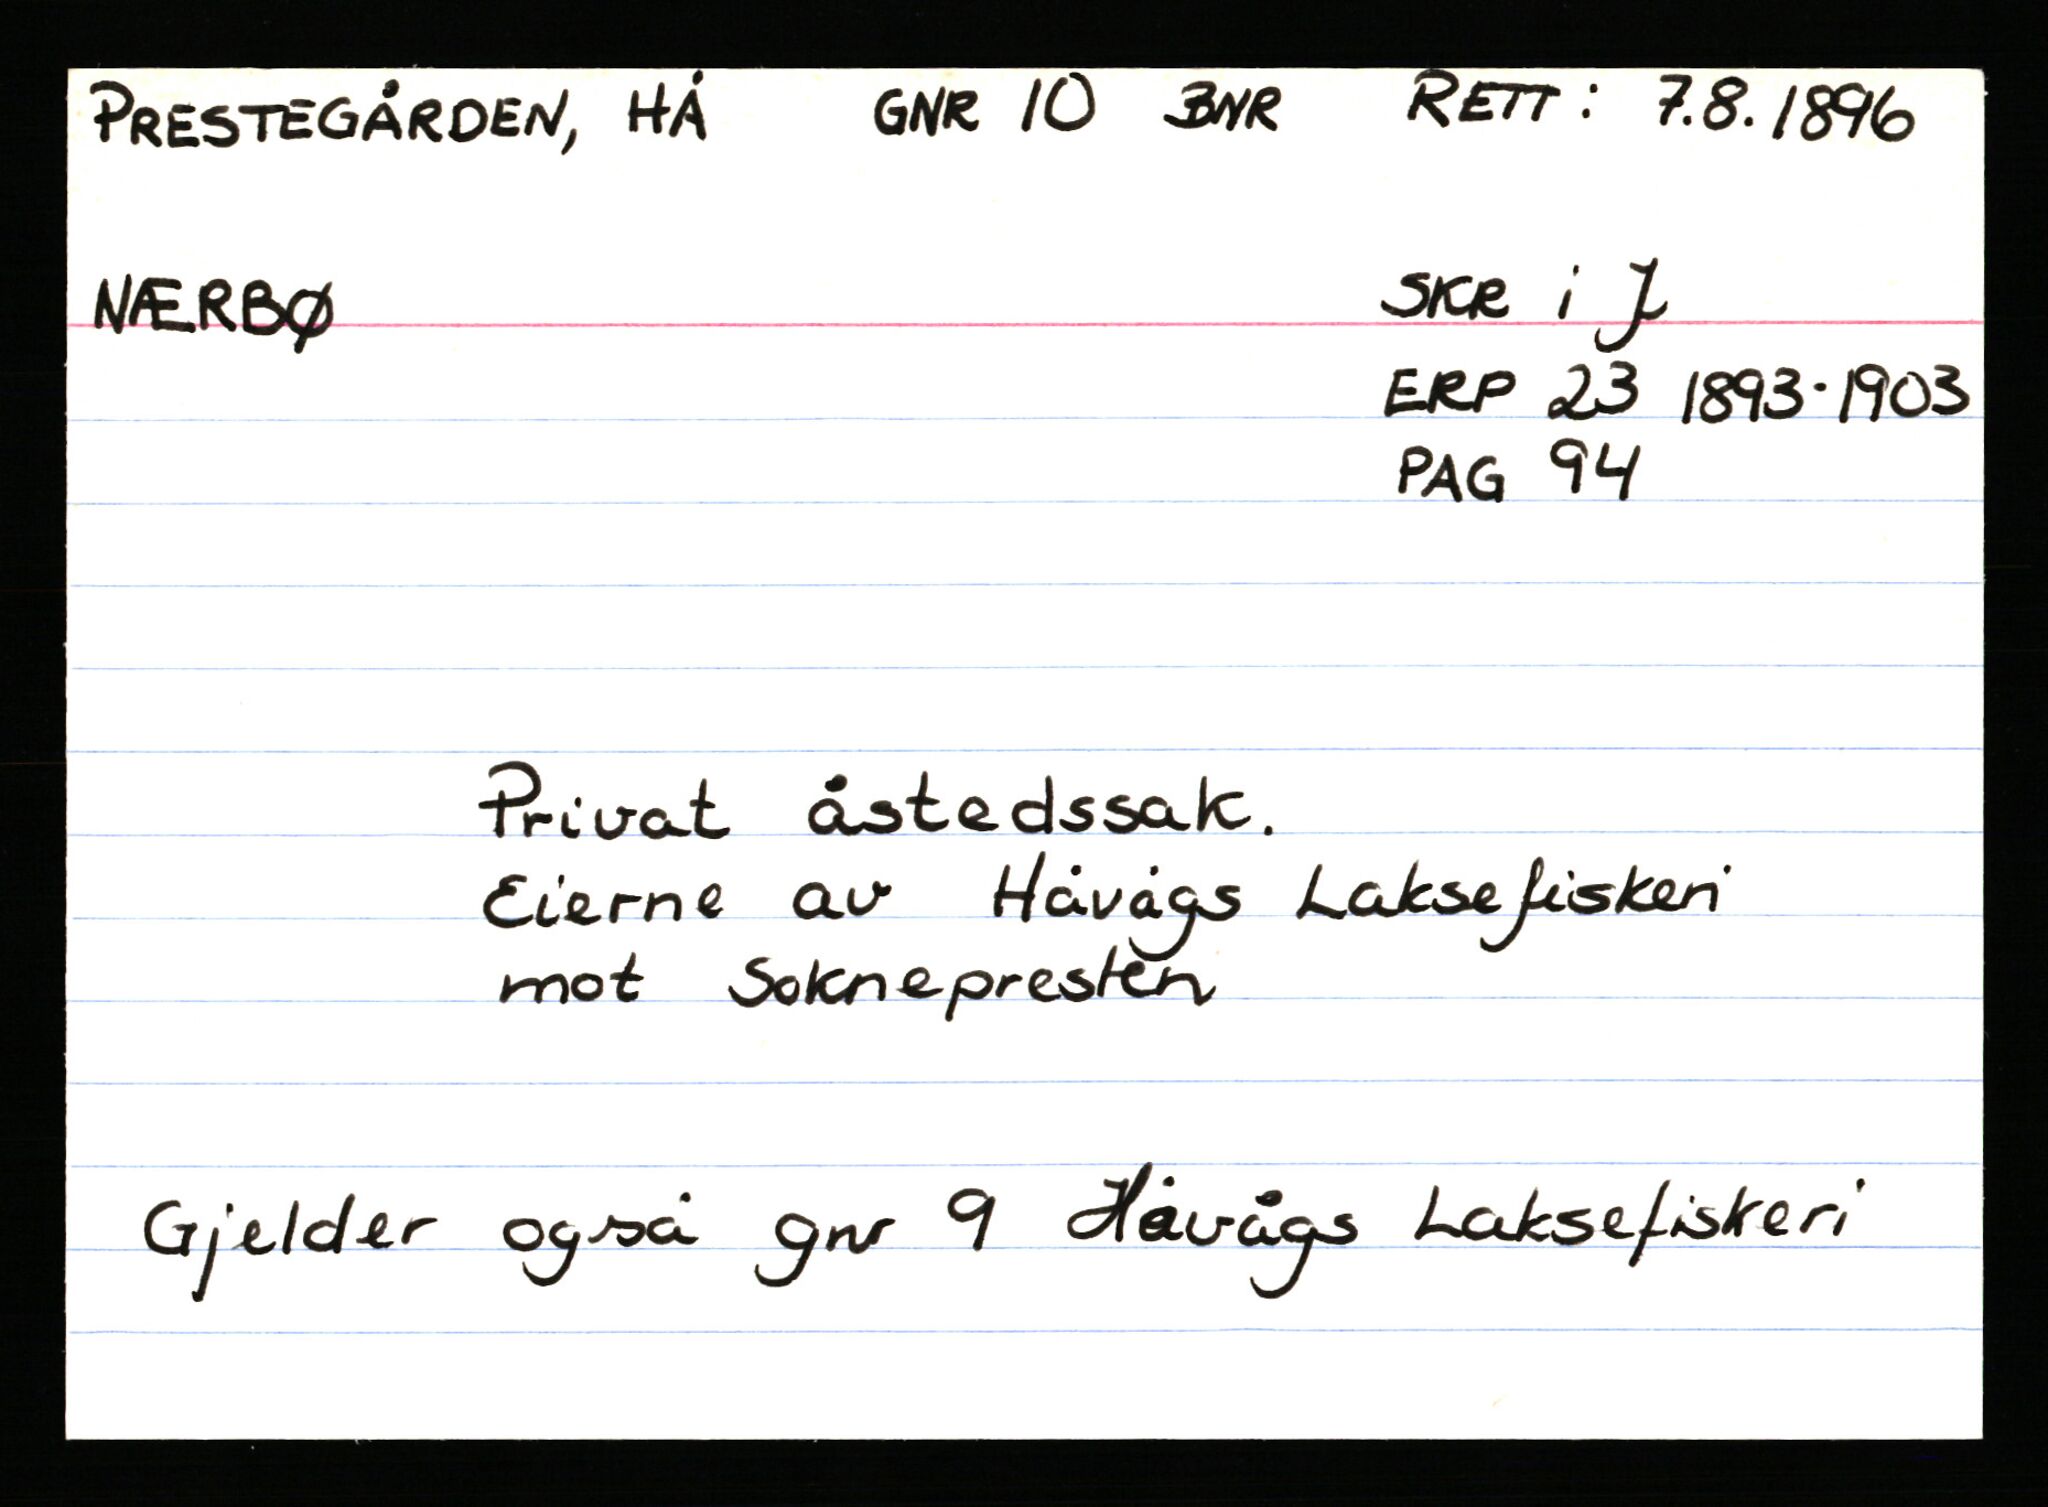 PRESTEGÅRDEN, HÅ GNR 10 BNR RETT: 7.8.1896
NÆRBØ SKR i J
ERP 23 1893-1903
PAG 94
Privat åstedssak.
Eierne av Håvågs Laksefiskeri
mot Soknepresten
Gjelder også gnr 9 Håvågs Laksefiskeri